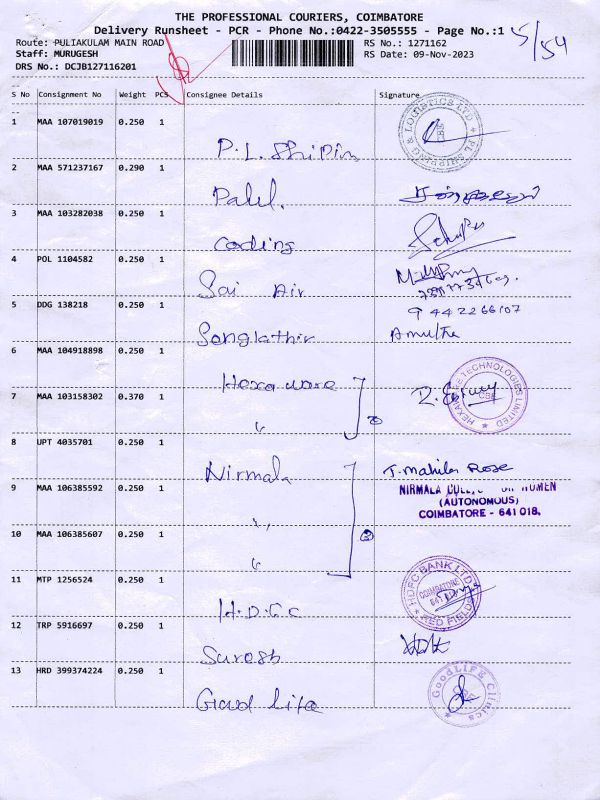 THE PROFESSIONAL COURIERS, COIMBATORE
Delivery Runsheet - PCR - Phone No.:0422-3505555 - Page No.:1
5/54
Route: PULIAKULAM MAIN ROAD
RS No.: 1271162
Staff: MURUGESH
RS Date: 09-Nov-2023
DRS No.: DCJB127116201
S No Consignment No Weight PCS Consignee Details Signature
1 MAA 107019019 0.250 1
PL SHIPPING & LOGISTICS CBE
2 MAA 571237167 0.290 1
Patel.
3 MAA 103282038 0.250 1
Coding
4 POL 1104582 0.250 1
Sai Air
5 DDG 138218 0.250 1
9442266107
Amutha
6 MAA 104918898 0.250 1
Hexaware
7 MAA 103158302 0.370 1
" 2
HEXAWARE TECHNOLOGIES LIMITED CBE
8 UPT 4035701 0.250 1
Nirmala
NIRMALA COLLEGE FOR WOMEN
(AUTONOMOUS)
COIMBATORE - 641 018.
9 MAA 106385592 0.250 1
"
10 MAA 106385607 0.250 1
" 3
11 MTP 1256524 0.250 1
H.D.F.C
HDFC BANK LTD. COIMBATORE RED FIELDS
12 TRP 5916697 0.250 1
Suresh
13 HRD 399374224 0.250 1
Good life
GoodLIFE Clinics